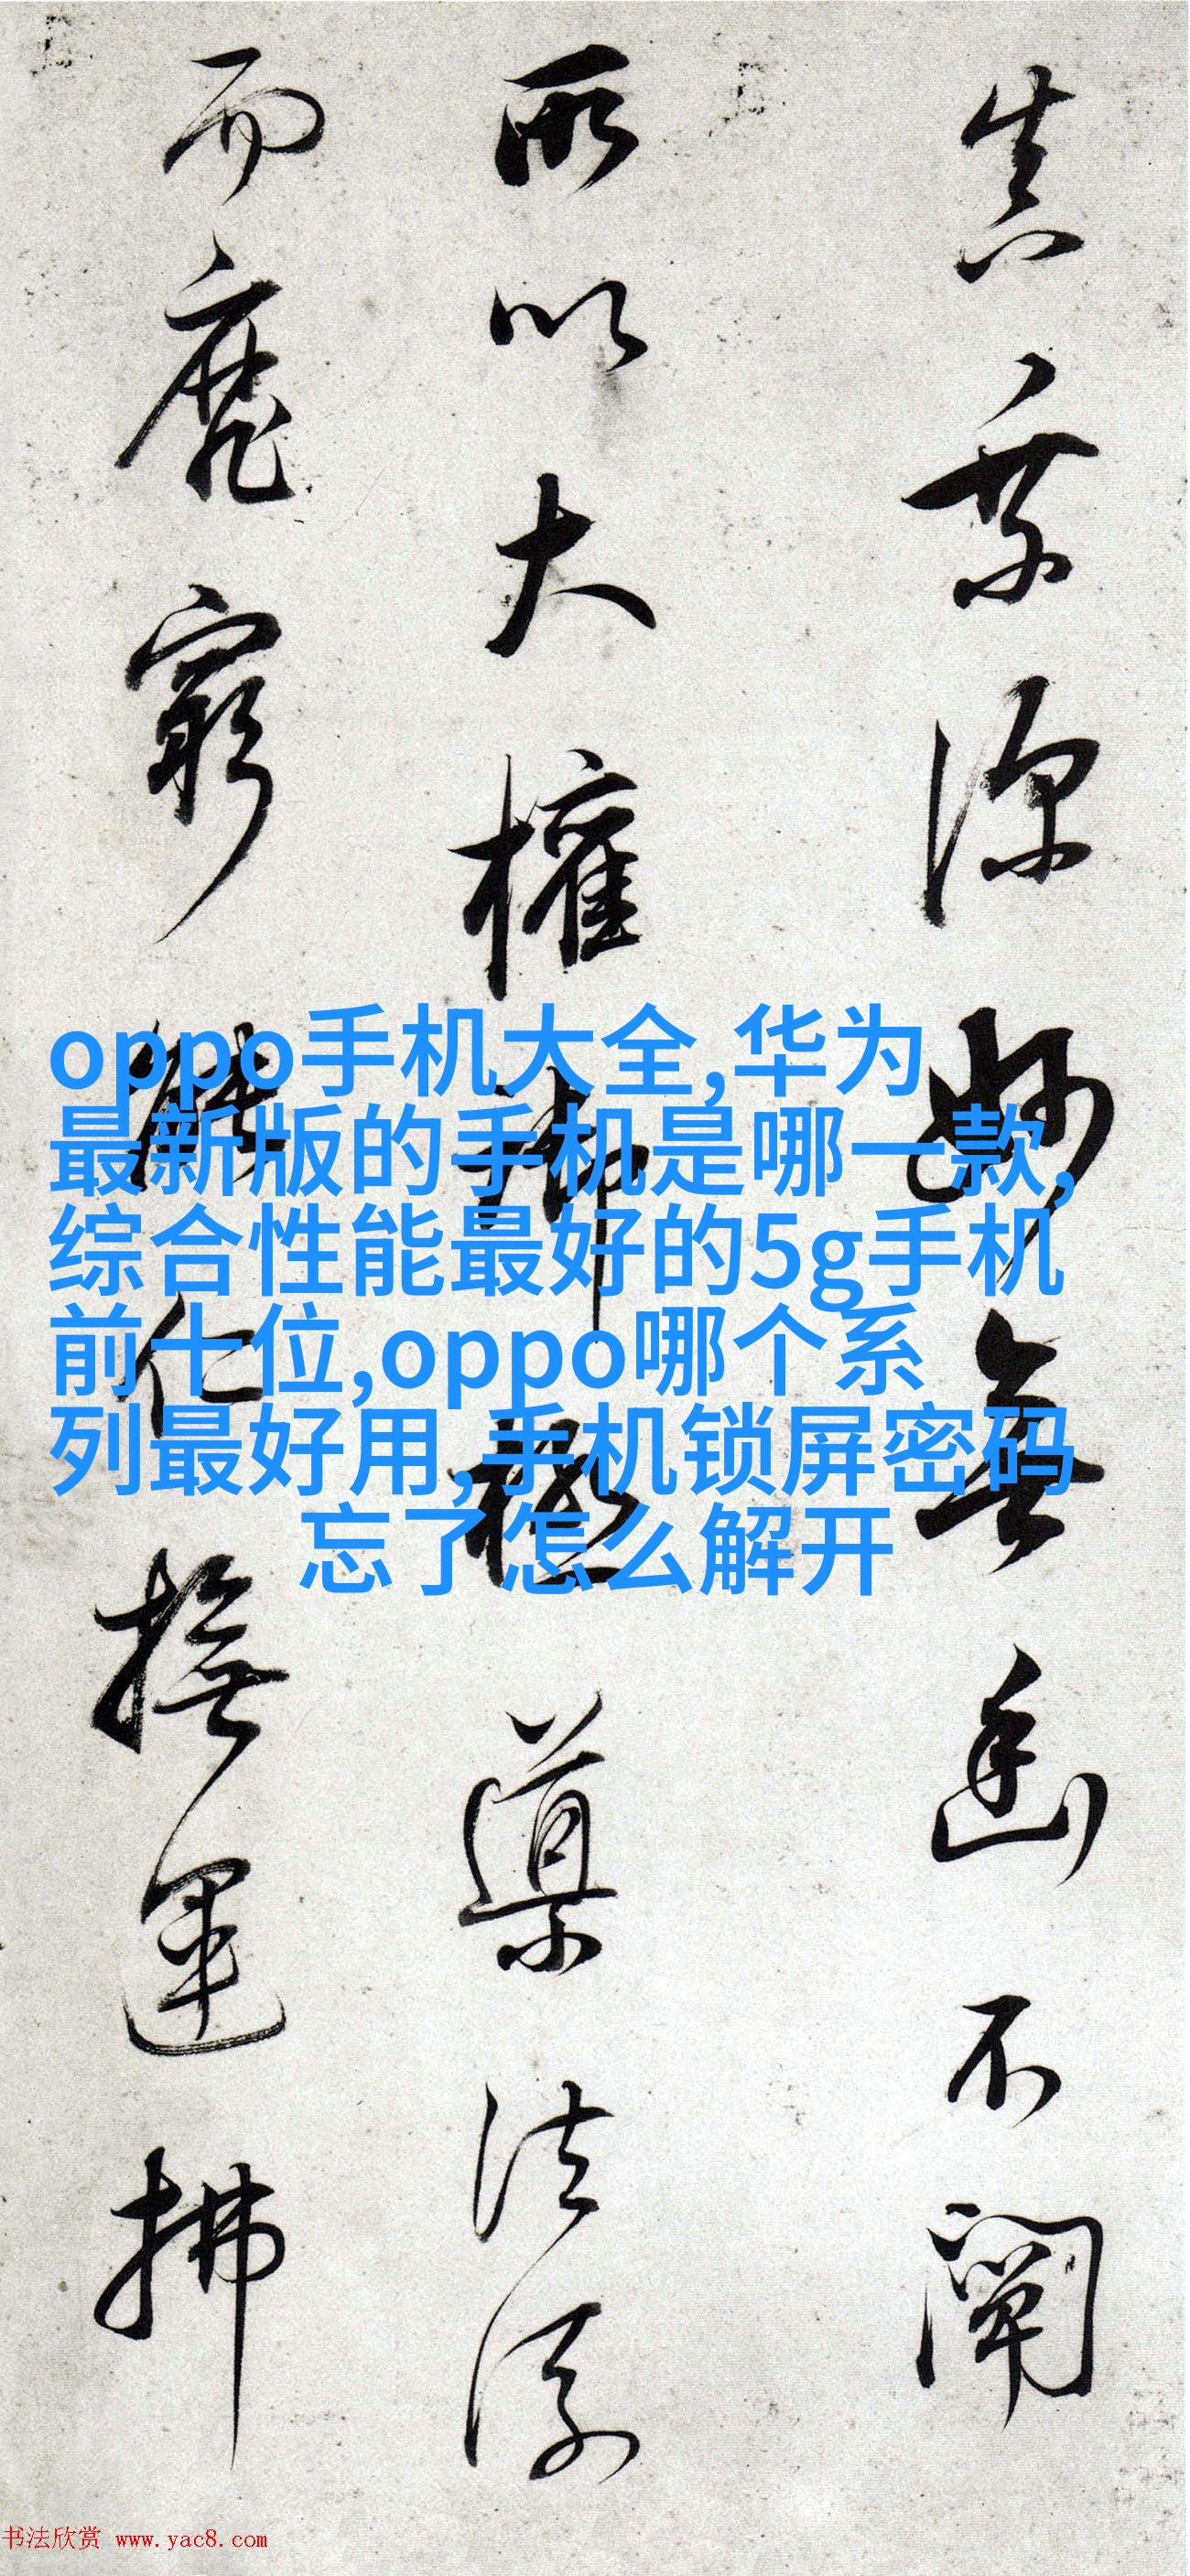 真深妙無幽不闡
所以大權御極導法流
而靡窮能仁撫運拂
oppo手机大全,华为
最新版的手机是哪一款,
综合性能最好的5g手机
前十位,oppo哪个系
列最好用,手机锁屏密码
忘了怎么解开
书法欣赏 www.yac8.com